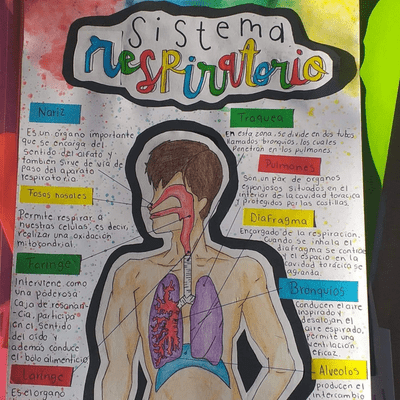 Sistema
respiratorio
Nariz
Es un órgano importante
que se encarga del
sentido del olfato y
también sirve de vía de
paso del aparato
respiratorio.
Fosas nasales
Permite respirar a
nuestras células, es decir,
realizar una oxidación
mitocondrial.
Faringe
Interviene como
una poderosa
caja de resonan-
cia, participa
en el sentido
del oído y
además conduce
el bolo alimenticio
Laringe
Es el órgano
Traquea
En esta zona, se divide en dos tubos
llamados bronquios, los cuales
penetran en los pulmones.
Pulmones
Son un par de órganos
esponjosos situados en el
interior de la cavidad torácica
y protegidos por las costillas.
Diafragma
Encargado de la respiración.
Cuando se inhala el
diafragma se contrae
y el espacio en la
cavidad torácica se
agranda.
Bronquios
Conducen el aire
inspirado y
desalojan el
aire espirado,
permite una
ventilación
eficaz.
Alveolos
producen el
intercambio